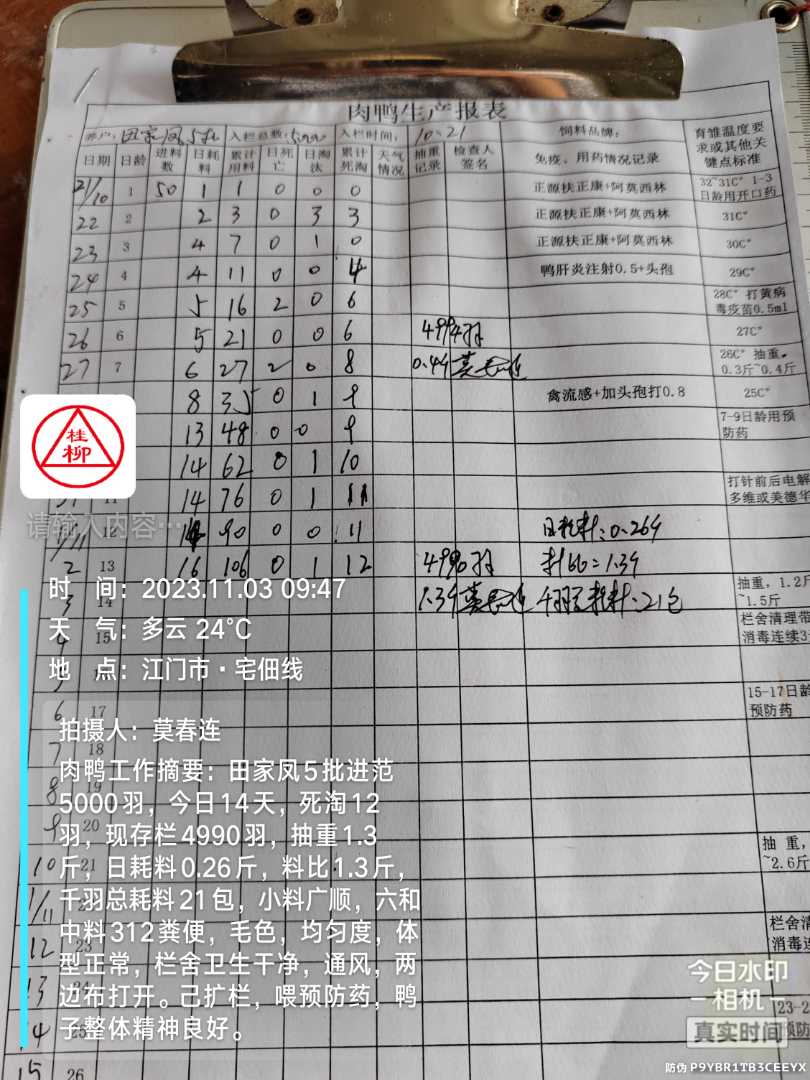 肉鸭生产报表
养户: 田家凤5批 入栏总数: 5000 入栏时间: 10.21 饲料品牌: 育雏温度要求或其他关键点标准
日期 日龄 进料数 日耗料 累计用料 日死亡 日淘汰 累计死淘 天气情况 抽重记录 检查人签名 免疫、用药情况记录
21/10 1 50 1 1 0 0 0 正源扶正康+阿莫西林 32~31C° 1-3日龄用开口药
22 2 2 3 0 3 3 正源扶正康+阿莫西林 31C°
23 3 4 7 0 1 0 正源扶正康+阿莫西林 30C°
24 4 4 11 0 0 4 鸭肝炎注射0.5+头孢 29C°
25 5 5 16 2 0 6 28C° 打黄病毒疫苗0.5ml
26 6 5 21 0 0 6 4994羽 27C°
27 7 6 27 2 0 8 0.4斤 莫春连 26C° 抽重。0.3斤~0.4斤
8 35 0 1 9 禽流感+加头孢打0.8 25C°
13 48 0 0 9 7-9日龄用预防药
14 62 0 1 10
11 14 76 0 1 11 打针前后电解多维或美德华
1/11 12 14 90 0 0 11 日耗料:0.26斤
2 13 16 106 0 1 12 4990羽 料比=1.3斤
3 14 1.3斤 莫春连 千羽总耗料:21包 抽重,1.2斤~1.5斤
4 15 栏舍清理带消毒连续3
5
6 17 15-17日龄预防药
7 18
8 19
9 20
10 21 抽重,~2.6斤
1/11
12 23 栏舍清消毒连
13 24
14 25 23-2预防
15 26
桂柳
请输入内容…
时 间: 2023.11.03 09:47
天 气: 多云 24°C
地 点: 江门市·宅佃线
拍摄人: 莫春连
肉鸭工作摘要: 田家凤5批进范
5000羽, 今日14天, 死淘12
羽, 现存栏4990羽, 抽重1.3
斤, 日耗料0.26斤, 料比1.3斤,
千羽总耗料21包, 小料广顺, 六和
中料312粪便, 毛色, 均匀度, 体
型正常, 栏舍卫生干净, 通风, 两
边布打开。己扩栏, 喂预防药, 鸭
子整体精神良好。
今日水印
相机
真实时间
防伪 P9YBR1TB3CEEYX